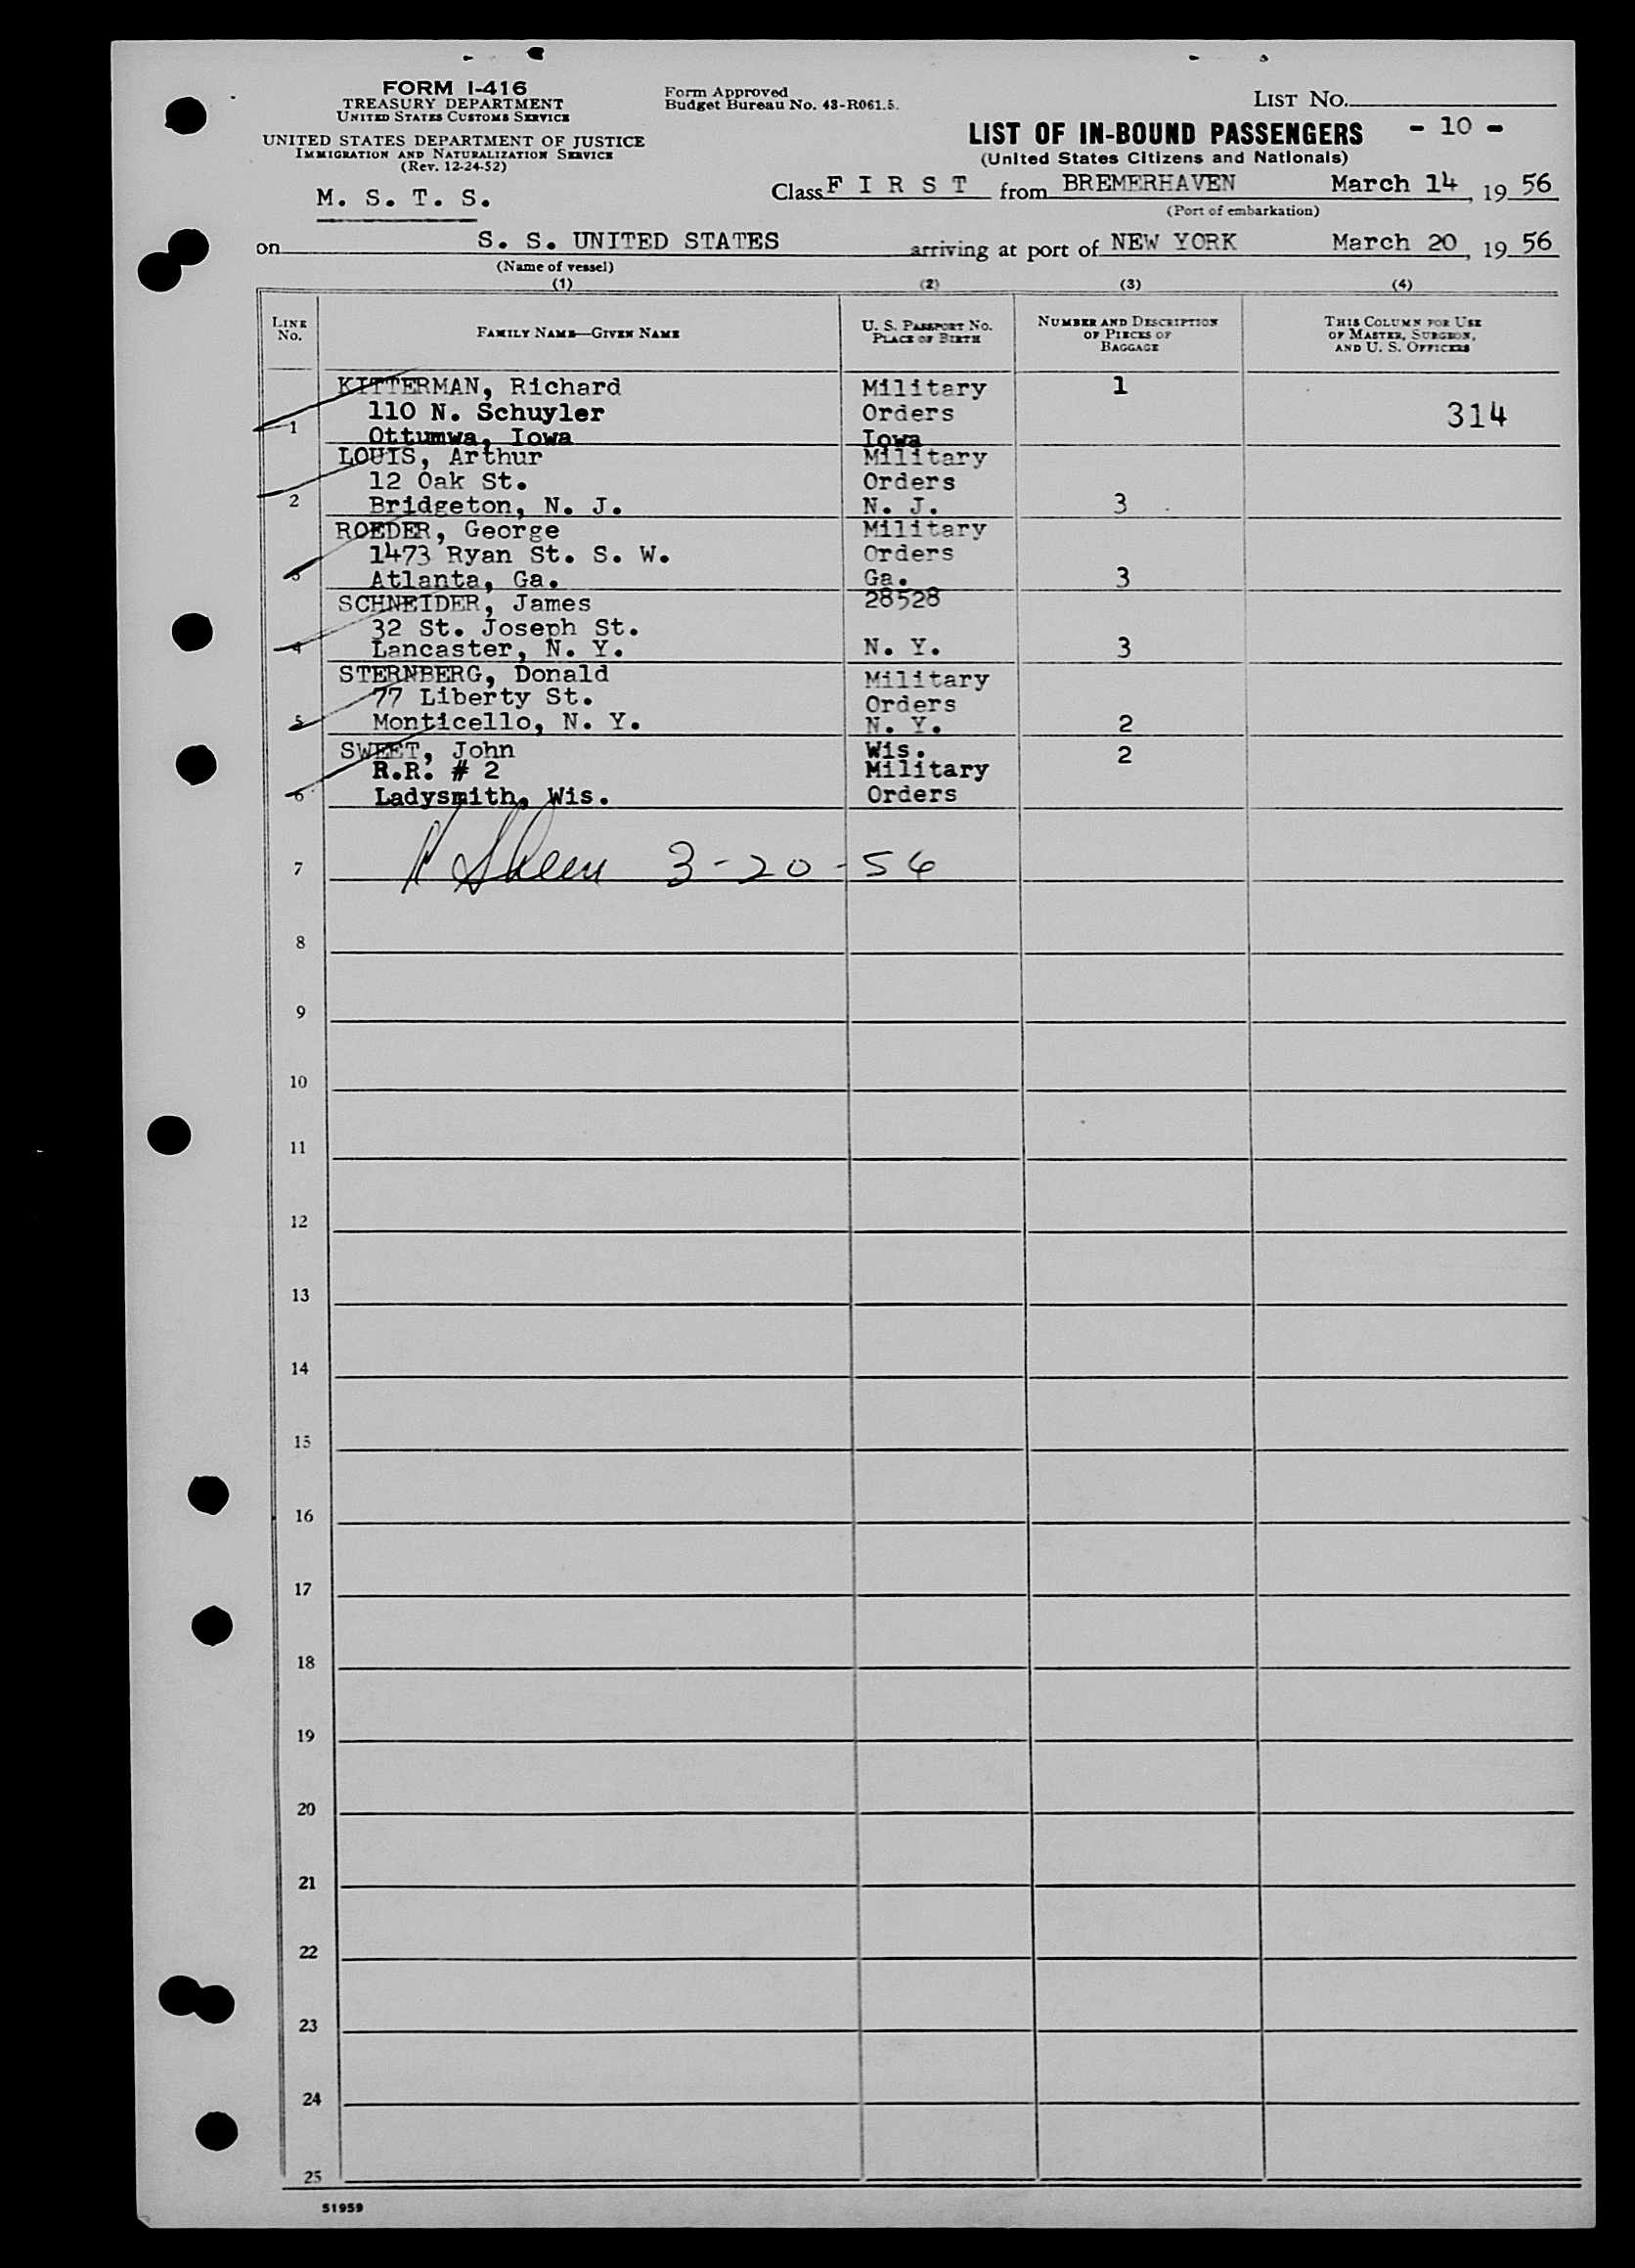 FORM I-416
TREASURY DEPARTMENT
UNITED STATES CUSTOMS SERVICE
UNITED STATES DEPARTMENT OF JUSTICE
IMMIGRATION AND NATURALIZATION SERVICE
(Rev. 12-24-52)
M. S. T. S.
Form Approved
Budget Bureau No. 43-R061.5.
LIST NO.
LIST OF IN-BOUND PASSENGERS - 10 -
(United States Citizens and Nationals)
Class F I R S T from BREMERHAVEN March 14, 19 56
(Port of embarkation)
on S. S. UNITED STATES arriving at port of NEW YORK March 20, 19 56
(Name of vessel)
(1) (2) (3) (4)
LINE NO. FAMILY NAME—GIVEN NAME U. S. PASSPORT NO. PLACE OF BIRTH NUMBER AND DESCRIPTION OF PIECES OF BAGGAGE THIS COLUMN FOR USE OF MASTER, SURGEON, AND U. S. OFFICERS
KITTERMAN, Richard Military 1
110 N. Schuyler Orders 314
1 Ottumwa, Iowa Iowa
LOUIS, Arthur Military
12 Oak St. Orders
2 Bridgeton, N. J. N. J. 3
ROEDER, George Military
1473 Ryan St. S. W. Orders
3 Atlanta, Ga. Ga. 3
SCHNEIDER, James 28528
32 St. Joseph St.
4 Lancaster, N. Y. N. Y. 3
STERNBERG, Donald Military
77 Liberty St. Orders
5 Monticello, N. Y. N. Y. 2
SWEET, John Wis. 2
R.R. # 2 Military
6 Ladysmith, Wis. Orders
7 3-20-56
8
9
10
11
12
13
14
15
16
17
18
19
20
21
22
23
24
25
51959